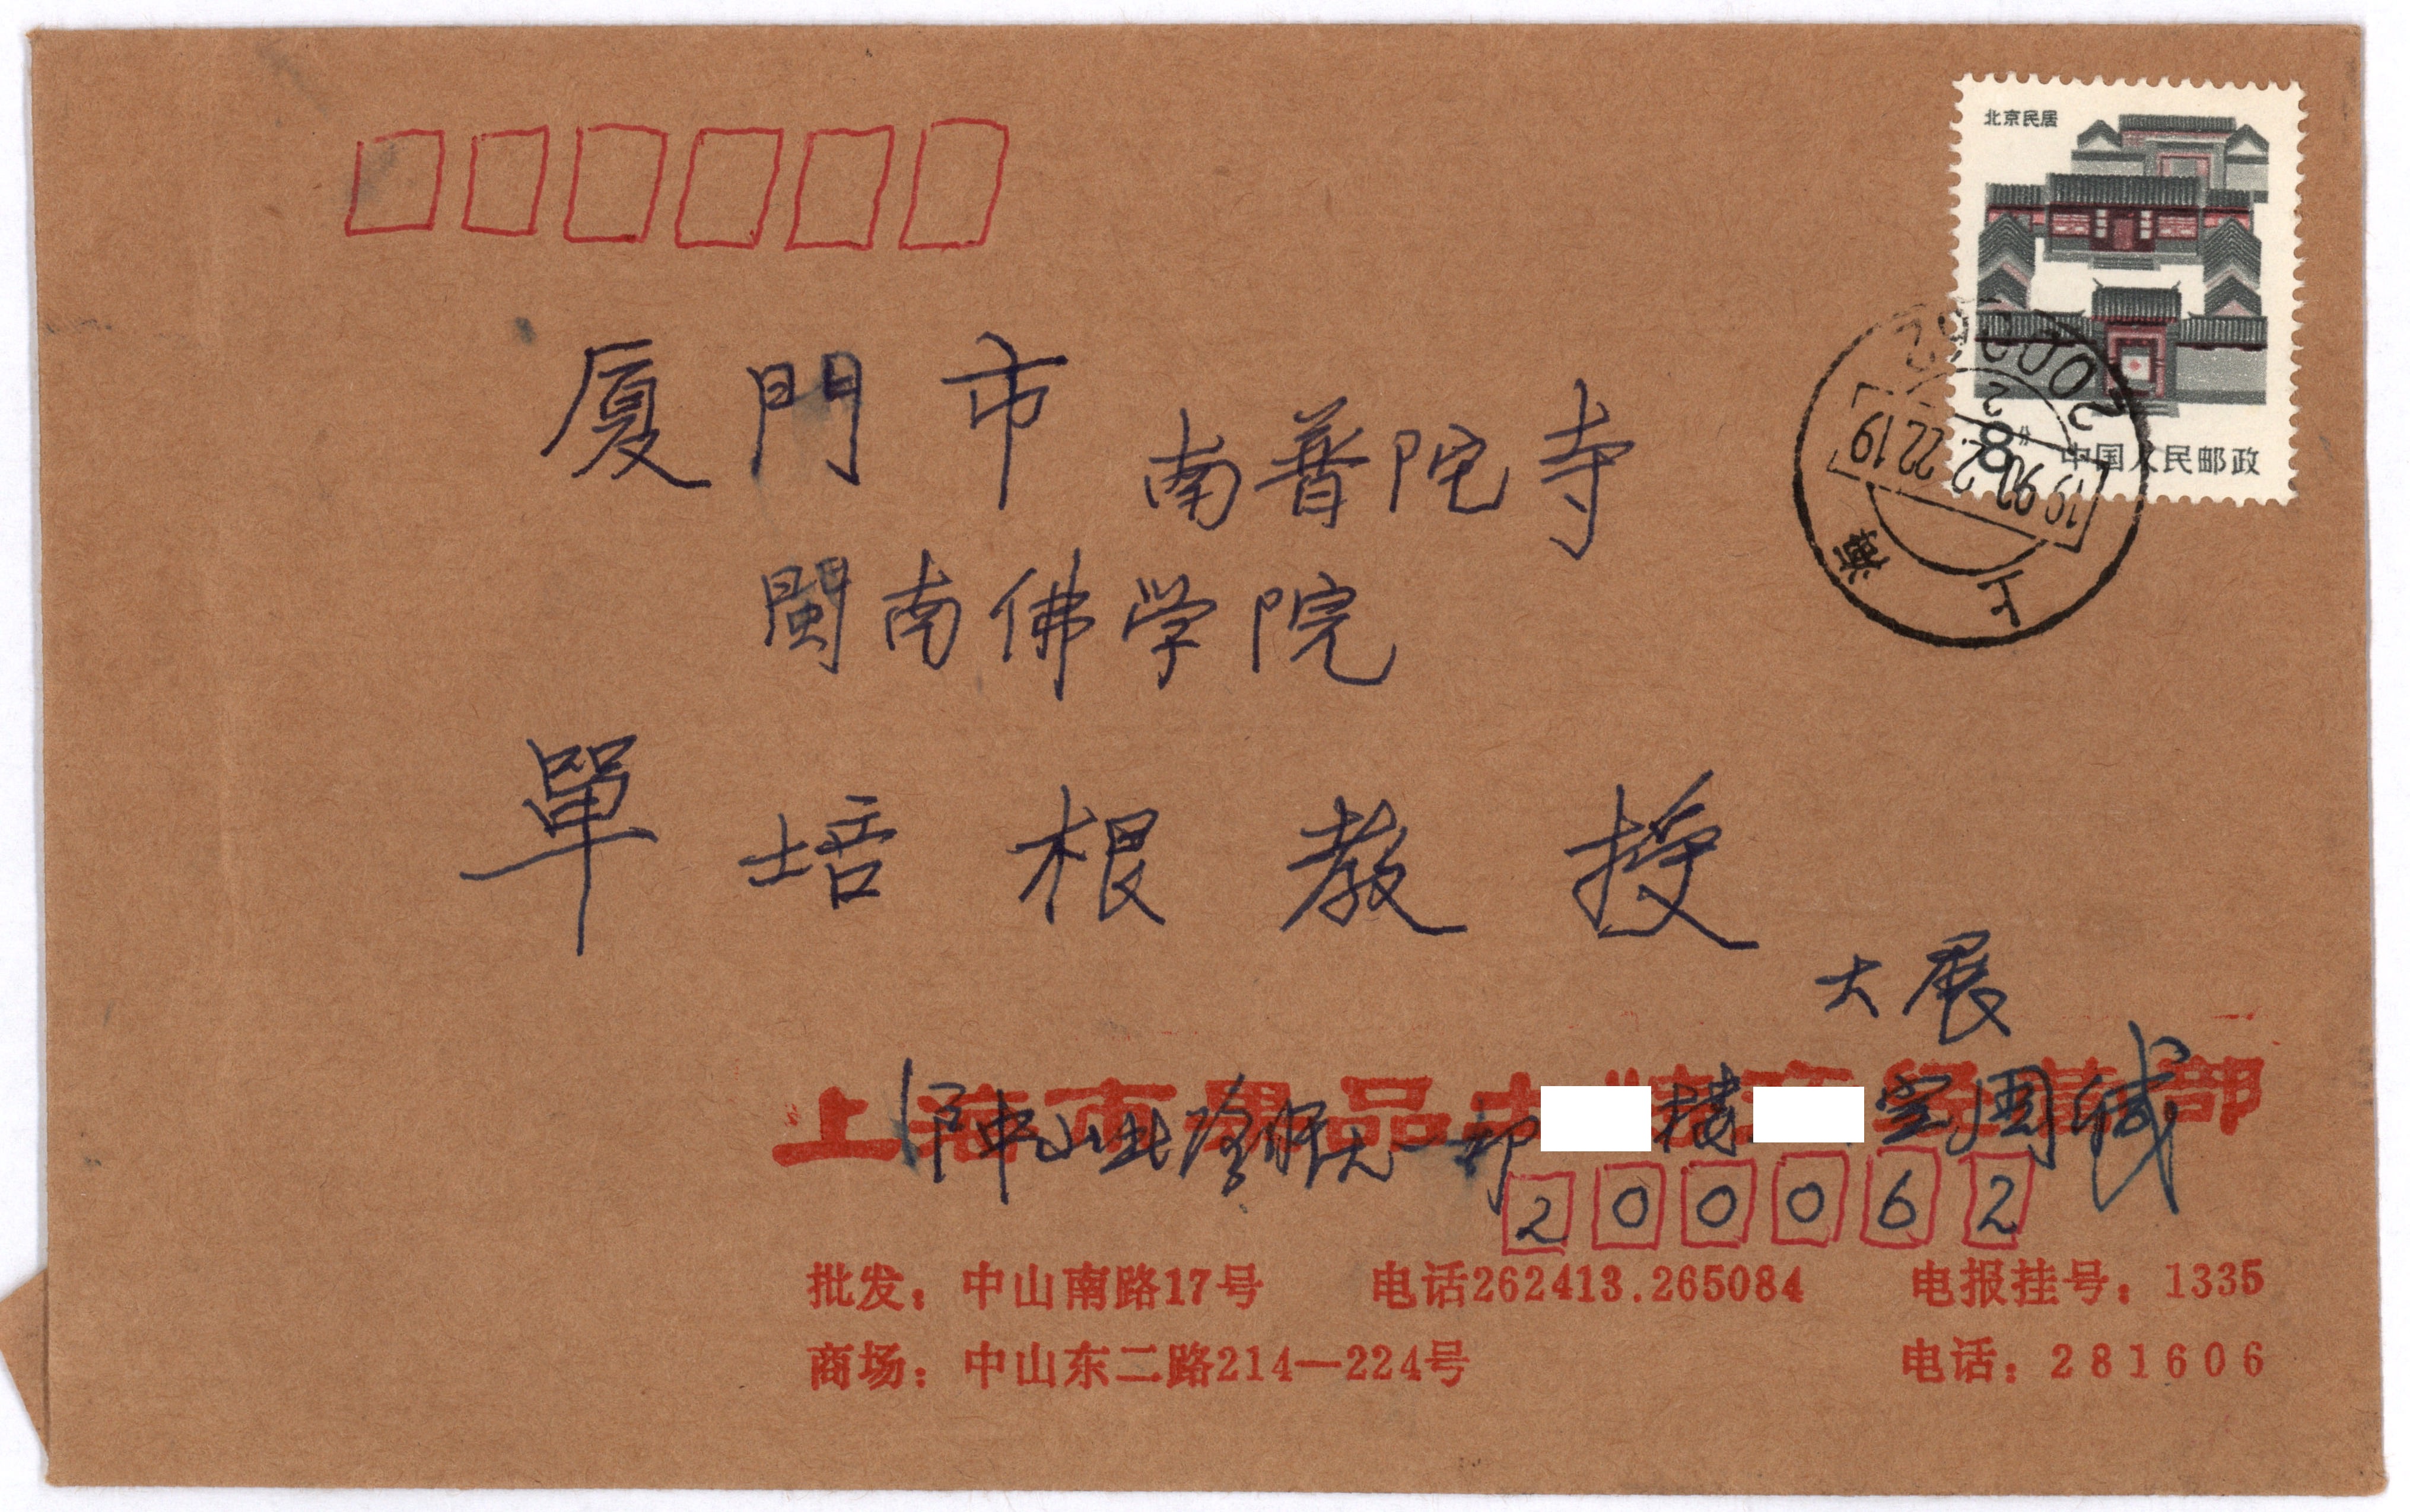 北京民居
8分 中国人民邮政
200062
2
19 90.2.22 19
上海
廈門市 南普陀寺
閩南佛学院
單培根教授
大展
上海市
中山北路 一 楼 室 周
200062
批发：中山南路17号 电话262413.265084 电报挂号：1335
商场：中山东二路214—224号 电话：281606